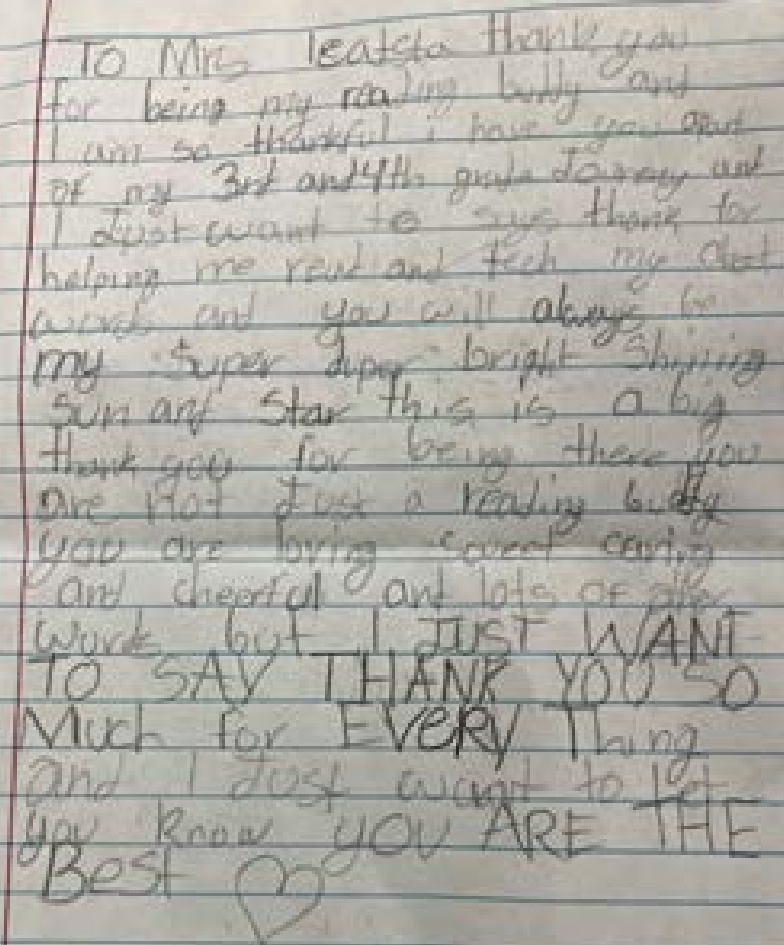 To Mrs leatsta thank you
for being my reading buddy and
I am so thankful i have you apart
of my 3rd and 4th grade Journey and
I Just want to says thank for
helping me read and tech my about
words and you will always be
my super duper bright Shining
sun and Star this is a big
thank you for being there you
are not Just a reading buddy
you are loving sweet caring
and cheerful and lots of other
words but I JUST WANT
TO SAY THANK YOU SO
Much for EVERY Thing
and I Just want to let
you know you ARE THE
Best